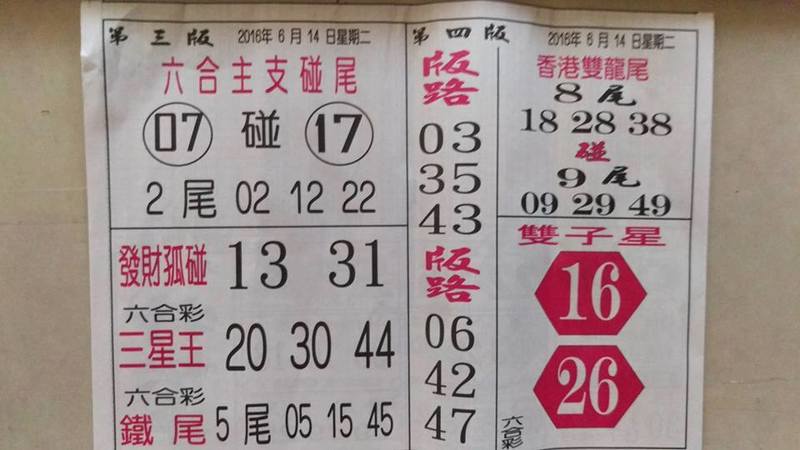 第三版 2016年6月14日星期二
六合主支碰尾
07 碰 17
2尾 02 12 22
發財孤碰 13 31
六合彩
三星王 20 30 44
六合彩
鐵尾 5尾 05 15 45
第四版 2016年6月14日星期二
版路
03
35
43
版路
06
42
47
香港雙龍尾
8尾
18 28 38
碰
9尾
09 29 49
雙子星
16
26
六合彩